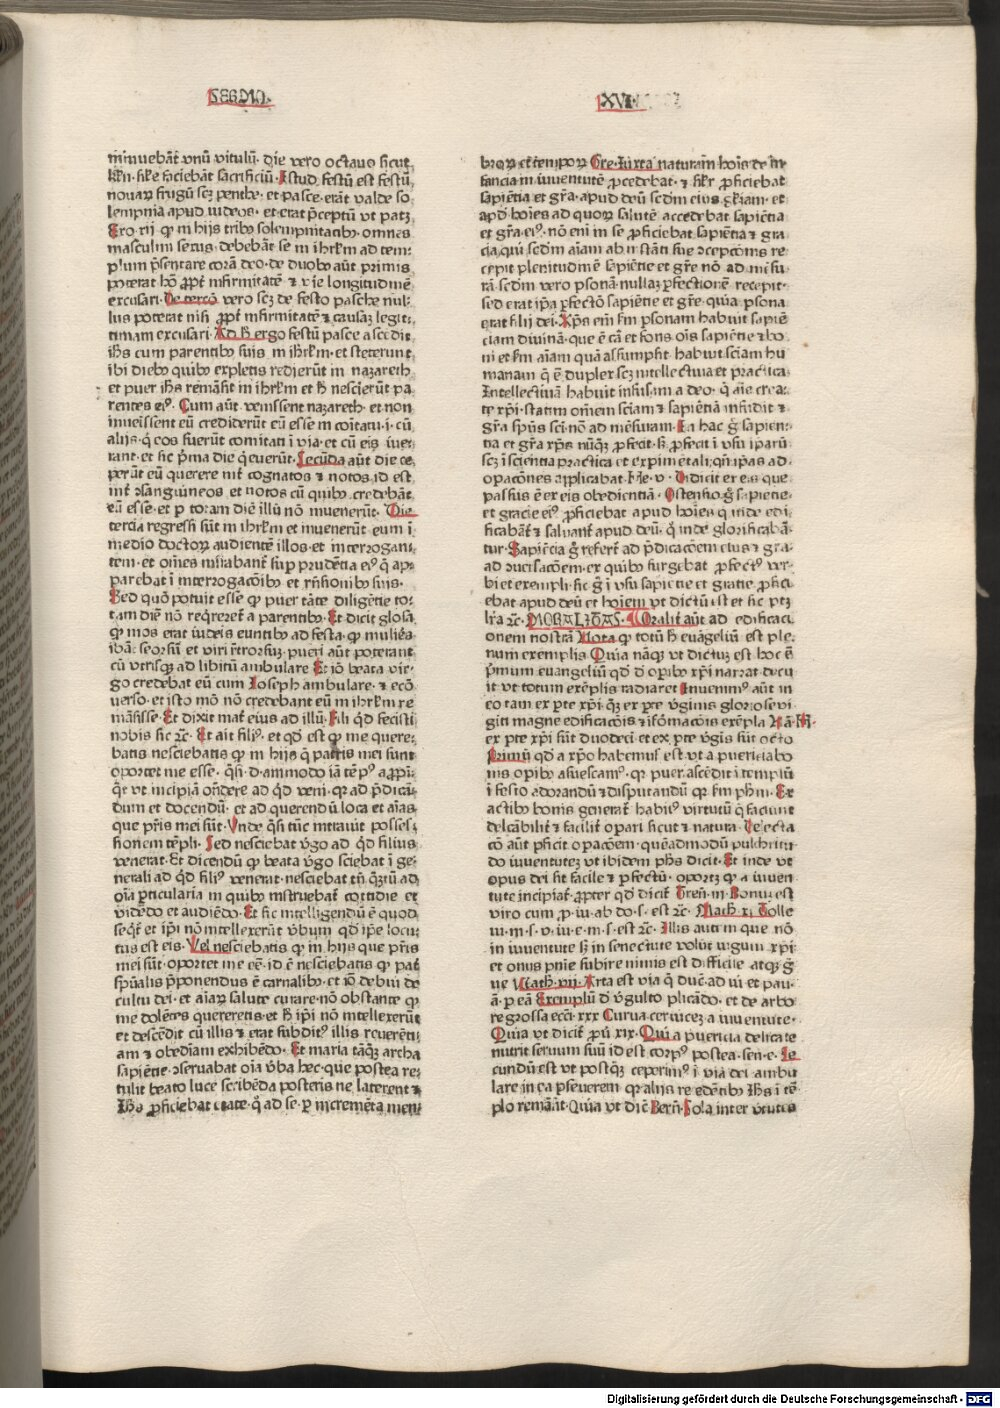 SERMO.
XVI
minuebāt vnū vitulū. die vero octauo sicut
kln. sil'e faciebāt sacrificiū. Istud festū est festū
nouaꝝ frugū scꝫ penthe. et pasce. erāt valde so
lempnia apud iudeos. et erat p̄ceptū vt patꝫ
Exo. xij ꝙ in hijs tribꝰ solempnitatibꝰ omnes
masculini sexus. debebāt se in ihrl'm ad tem-
plum p̄sentare corā deo. de duobꝰ aūt primis
poterat hō ꝓpt' infirmitatē ⁊ vie longitudinē
excusari. De tercō vero scꝫ de festo pasche nul-
lus poterat nisi ꝓpt' infirmitatē ⁊ causaꝫ legit-
timam excusari. Ad h' ergo festū pasce ascēdit
ihs cum parentibꝰ suis in ihrl'm. et steterunt
ibi diebꝰ quibꝰ expletis redierūt in nazareth
et puer ihs remāsit in ihrl'm et h' nescierūt pa
rentes eiꝰ. Cum aūt venissent nazareth. et non
inueissent eū crediderūt eū esse in coitatu. i. cū
alijs. q̄ eos fuerūt comitati i via. et cū eis iue-
rant. et sic p̄ma die q̄euerūt. Secūda aūt die ce
perūt eū querere int' cognatos ⁊ notos. id est
int' ɔsanguineos. et notos cū quibꝰ credebāt
eū esse. et p totam diē illū nō inuenerūt. Die
tercia regressi sūt in ihrl'm et inuenerūt eum i
medio doctoꝝ audientē illos. et interrogan-
tem. et om̄es mirabant' sup prudētia eiꝰ q̄ ap-
parebat i interrogacōibꝰ et rn̄sionibꝰ suis.
Sed quō potuit esse ꝙ puer tāte diligētie to-
tam diē nō reqreret' a parentibꝰ. Et dicit glosa
ꝙ mos erat iudeis euntibꝰ ad festa. ꝙ mulieres
ibāt seorsū et viri r̄trorsū. pueri aūt poterant
cū vtrisqꝫ ad libitū ambulare Et iō beata vir-
go credebat eū cum Ioseph ambulare. ⁊ ecō
uerso. et isto mō nō credebant eū in ihrl'm re
māsisse. Et dixit mat' eius ad illū. Fili qd fecisti
nobis sic ⁊c. Et ait filiꝰ. et qd est ꝙ me quere-
batis nesciebatis ꝙ in hijs q̄ patris mei sunt
oportet me esse. q̄si. d. ammodo iā tēpꝰ aꝓpi-
q̄t vt incipiā ondere ad qd veni. qr ad p̄dicā-
dum et docendū. et ad querendū loca et aīas
que pr̄is mei sūt. Vnde q̄si tūc intrauit posses-
sionem tēpli. Sed nesciebat v̓go ad qd filius
venerat. Et dicendū ꝙ beata v̓go sciebat i ge-
nerali ad qd filiꝰ venerat. nesciebat tn̄ q̄tū ad
oīa p̄ticularia in quibꝰ instruebat' cottidie et
vidēdo et audiēdo. Et sic intelligendū ē quod
seqr' et ip̄i nō intellexerūt v̓bum qd ip̄e locu-
tus est eis. Vel nesciebatis ꝙ in hijs que pr̄is
mei sūt. oportet me eē. id ē nesciebatis ꝙ pat'
sp̄ualis p̄ponendus ē carnalibꝰ. et iō debui de
cultu dei. et aīaꝝ salute curare. nō obstante ꝙ
me dolētes quereretis. et h' ip̄i nō intellexerūt
et descēdit cū illis ⁊ erat subditꝰ illis reuerēti-
am ⁊ obediam exhibēdo. Et maria tāqꝫ archa
sapiētie. ɔseruabat oīa v̓ba hec. que postea re-
tulit beato luce scribēda posteris ne laterent ⁊
Ihs ꝓficiebat etate. q̄ ad se p incremēta mem-
broꝝ et tempoꝝ Gre. Iuxta naturam hoīs de in
fancia in iuuentutē ꝓcedebat. ⁊ sil'r ꝓficiebat
sapiētia et gr̄a. apud deū sedm eius gl'iam. et
apd hoīes ad quoꝝ salutē accedebat sapiētia
et gr̄a eiꝰ. nō em̄ in se ꝓficiebat sapiētia ⁊ gra
cia. qui sedm aīam ab instāti sue ɔcepcōnis re
cepit plenitudinē sapiētie et gr̄e nō ad mēsu-
rā. sedm vero ꝑsonā nullaꝫ ꝑfectionē recepit.
sed erat ip̄a ꝑfectō sapiētie et gr̄e. quia ꝑsona
erat filij dei. Xp̄s em̄ s'm ꝑsonam habuit sapiē
ciam diuinā. que ē cā et fons oīs sapiētie ⁊ bo
ni et s'm aīam quā assumpsit. habuit sciam hu
manam q̄ ē duplex scꝫ intellectiua et practica
Intellectiuā habuit infusam a deo. q̄ aīe crea-
te xp̄i. statim om̄em sciam ⁊ sapiētiā infudit ⁊
gr̄a sp̄us sci nō ad mēsuram. Ea hac g̊ sapien-
tia et gr̄a xp̄s nūqꝫ ꝓfecit. s' ꝓfecit i vsu ip̄arū
scꝫ i scientia practica et expimētali. qn̄ ip̄as ad
opacōnes applicabat. He. v. Didicit ex eis que
passus ē ex eis obedientiā. Ostensio g̊ sapiētie
et gracie eiꝰ. ꝓficiebat apud hoīes q̄ inde edi
ficabāt' ⁊ saluant' apud deū. q̄ inde glorificabā
tur. Sapiēcia g̊ refert' ad p̄dicacōem eius ⁊ gra
ad ɔuersacōem. ex quibꝰ surgebat ꝓfectꝰ ver-
bi et exempli. sic g̊ i vsu sapiētie et gratie ꝓfici
ebat apud deū et hoīem vt dictū est et sic ptꝫ
lr̄a ⁊c. MORALITAS. Moralit' aūt ad edificaci
onem nostrā Nota ꝙ totū h' euāgeliū est ple-
num exemplis Quia nāqꝫ vt dictuꝫ est hoc ē
p̄mum euangeliū qd d' opibꝰ xp̄i narrat. decu
it vt totum exēplis radiaret Inuenimꝰ aūt in
eo tam ex pte xp̄i. qꝫ ex pre v̓ginis gloriose vi-
giti magne edificacōis ⁊ ifomacōis exēpla Nā.
ex pte xp̄i sūt duodeci et ex pte v̓gis sūt octo
Primū qd a xp̄o habemꝰ est. vt a puericia bo
nis opibꝰ asuescamꝰ. qr puer ascēdit i templū
i festo adorandū ⁊ disputandū qr s'm ph̄m. Ex
actibꝰ bonis generat' habitꝰ virtutū q̄ faciunt
delcābilit' ⁊ facilit' opari sicut ⁊ natura. Delecta
cō aūt pficit opacōem. quēadmodū pulchritu
do iuuentuteꝫ vt ibidem ph̄s dicit. Et inde vt
opus dei sit facile ⁊ ꝑfectū. oportꝫ ꝙ a iuuen
tute incipiat'. ꝓpter qd dicit' Tren̄. iij. Bonū est
viro cum p. iu. ab do. s. est ⁊c. Math. xi. Tolle
iu. m. s. v. iu. e. m. s. est ⁊c. Illis autem que nō
in iuuentute s' in senectute volūt iugum xp̄i
et onus pnīe subire nimis est difficile atqꝫ g̊
ue Math. vij. Arta est via q̄ ducit ad vi et pau-
ā. p eā Exemplū d' v̓gulto plicādo. et de arbo
re grossa ecci. xxx Curua ceruiceꝫ a iuuentute.
Quia vt dicit' prou̓ xix. Qui a puericia delicate
nutrit seruum suū id est corpꝰ postea. sen. e. Se
cundū est vt postqꝫ ceperimꝰ i via dei ambu
lare in ea pseuerem'. qr alijs redeūtibꝰ Ihs i tē-
plo remāsit. Quia vt dic̄ Bern̄. Sola inter v̓tutes